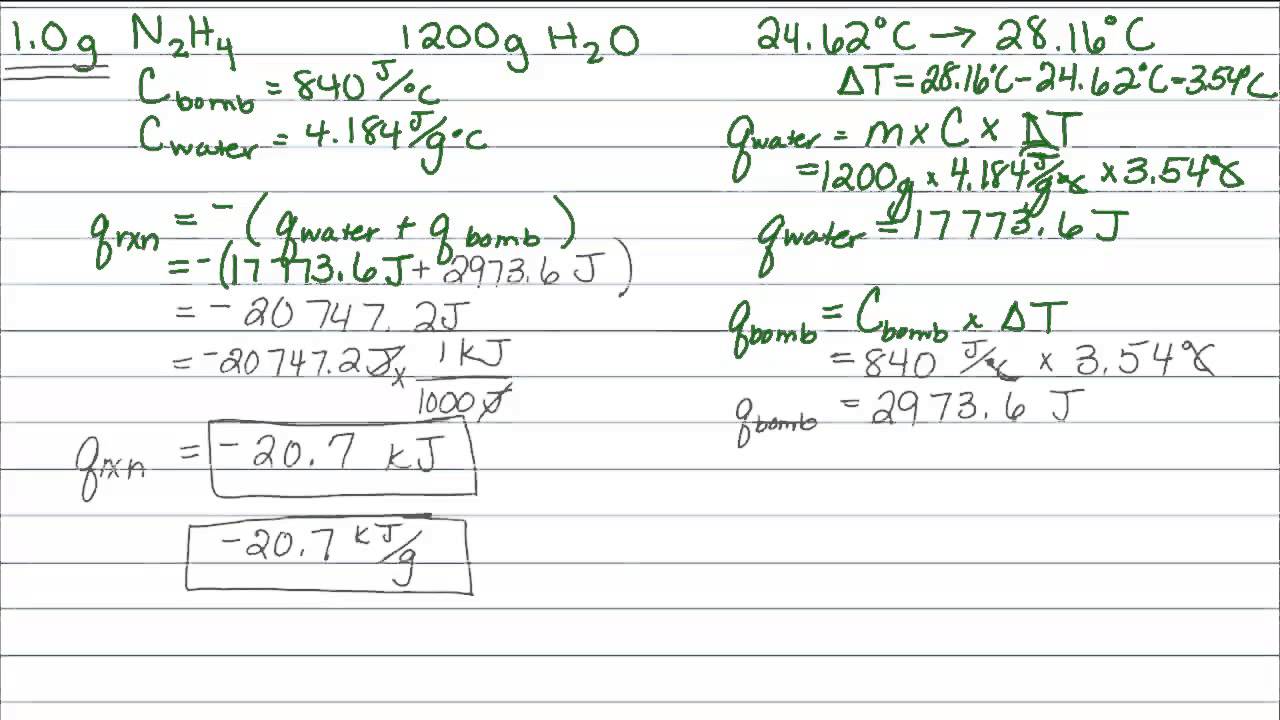 1.0g N₂H₄ 1200g H₂O 24.62°C → 28.16°C
C bomb = 840 J/°C
ΔT = 28.16°C - 24.62°C = 3.54°C
C water = 4.184 J/g·°C
q water = m × C × ΔT
= 1200g × 4.184 J/g°C × 3.54°C
q water = 17773.6 J
q rxn = -(q water + q bomb)
= -(17773.6J + 2973.6 J)
= -20747.2J
= -20747.2J × 1 kJ / 1000 J
q rxn = -20.7 kJ
-20.7 kJ/g
q bomb = C bomb × ΔT
= 840 J/°C × 3.54°C
q bomb = 2973.6 J